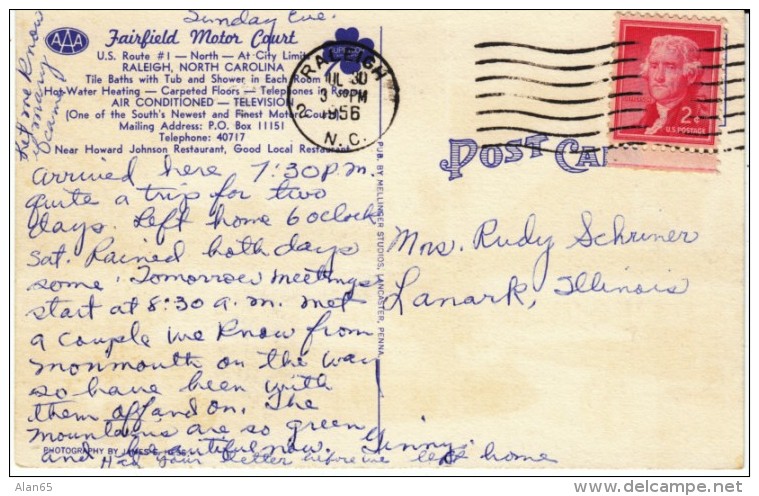 Sunday Eve.
AAA
Fairfield Motor Court
U.S. Route #1 — North — At City Limit
RALEIGH, NORTH CAROLINA
Tile Baths with Tub and Shower in Each Room
Hot Water Heating — Carpeted Floors — Telephones in Ro
AIR CONDITIONED — TELEVISION
(One of the South's Newest and Finest Motor Courts)
Mailing Address: P.O. Box 11151
Telephone: 40717
Near Howard Johnson Restaurant, Good Local Restaurant
Let me know
if many
came
RALEIGH
JUL 30
3 PM
1956
N.C.
2¢
U.S. POSTAGE
POST CA
arrived here 7:30 P.M.
quite a trip for two
days. Left home 6 oclock
Sat. Rained both days
some. Tomorrow meetings
start at 8:30 a.m. met
a couple we know from
monmouth on the way
so have been with
them off and on. The
mountains are so green
and beautiful now. Ginny.
Had your letter before we left home
PHOTOGRAPHY BY JAMES
PUB. BY MELLINGER STUDIOS, LANCASTER, PENNA.
Mrs. Rudy Schriner
Lanark, Illinois
Alan65
www.delcampe.net